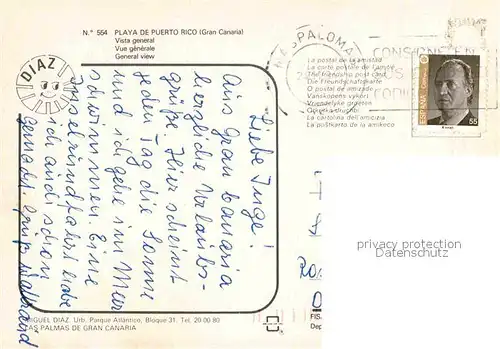 N.° 554 PLAYA DE PUERTO RICO (Gran Canaria)
Vista general
Vue générale
General view
DIAZ
MASPALOMA
CONSIGNE EN
La postal de la amistad
La carte postale de l'amitié
The friendship post card
Die Freundschaftskarte
O postal de amizade
Vanskapens vykort
Vriendelijke groeten
La cartolina dell'amicizia
La poŝtkarto de la amikeco
ESPAÑA
55
Liebe Inge!
Aus Gran Canaria
herzliche Urlaubs-
grüße. Hier scheint
jeden Tag die Sonne
und ich gehe im Meer
schwimmen. Eine
Inselrundfahrt habe
ich auch schon
gemacht. Gruß Waltraud
privacy protection
Datenschutz
MIGUEL DIAZ. Urb. Parque Atlántico, Bloque 31. Tel. 20 00 80
LAS PALMAS DE GRAN CANARIA
FIS
Dep